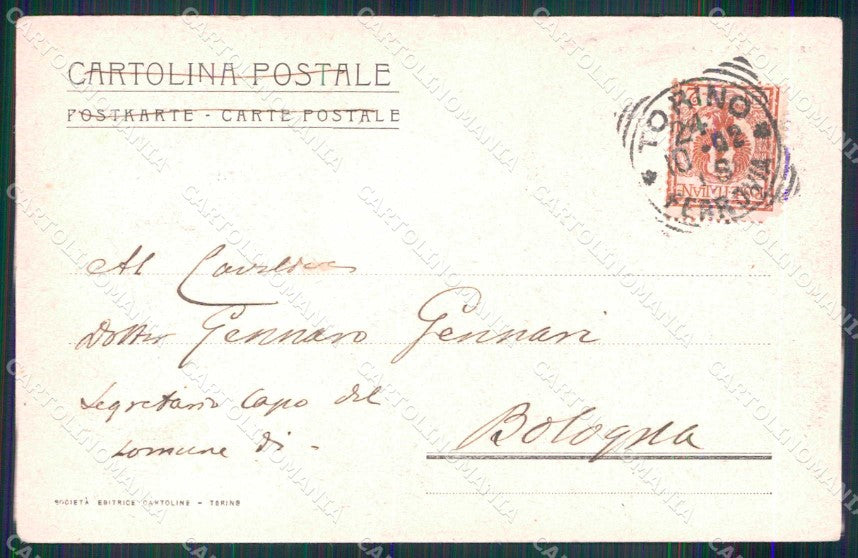 CARTOLINA POSTALE
POSTKARTE - CARTE POSTALE
TORINO
24
10 - 02
FERROVIA
Al
Dottor Gennaro Gennari
Segretario Capo del
Comune di -
Bologna
SOCIETÀ EDITRICE CARTOLINE - TORINO
CARTOLINOMANIA